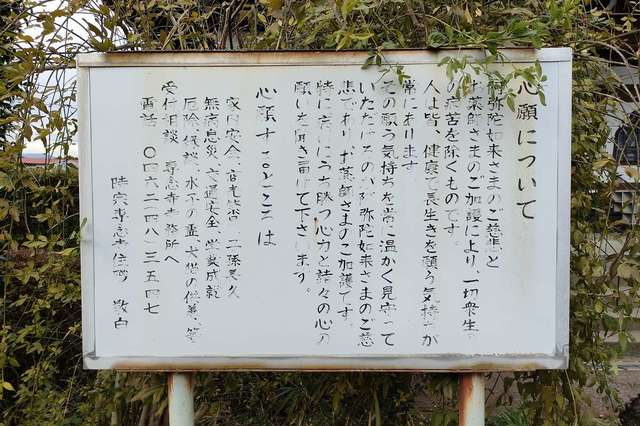 心願について
阿弥陀如来さまのご慈悲と
お薬師さまのご加護により、一切衆生
の病苦を除くものです。
人は皆、健康で長生きを願う気持ちが
常にあります
その願う気持ちを常に温かく見守って
いただけるのが阿弥陀如来さまのご慈
悲であり、お薬師さまのご加護です。
特に病にうち勝つ心力と諸々の心の
願いを聞き届けて下さいます。
心願するところは
家内安全、商売繁昌、子孫長久
無病息災、交通安全、学業成就
厄除、水子の霊、犬猫の供養、等
受付相談 専念寺寺務所へ
電話 〇四六二ー四八ー三五四七
専念寺住職 敬白